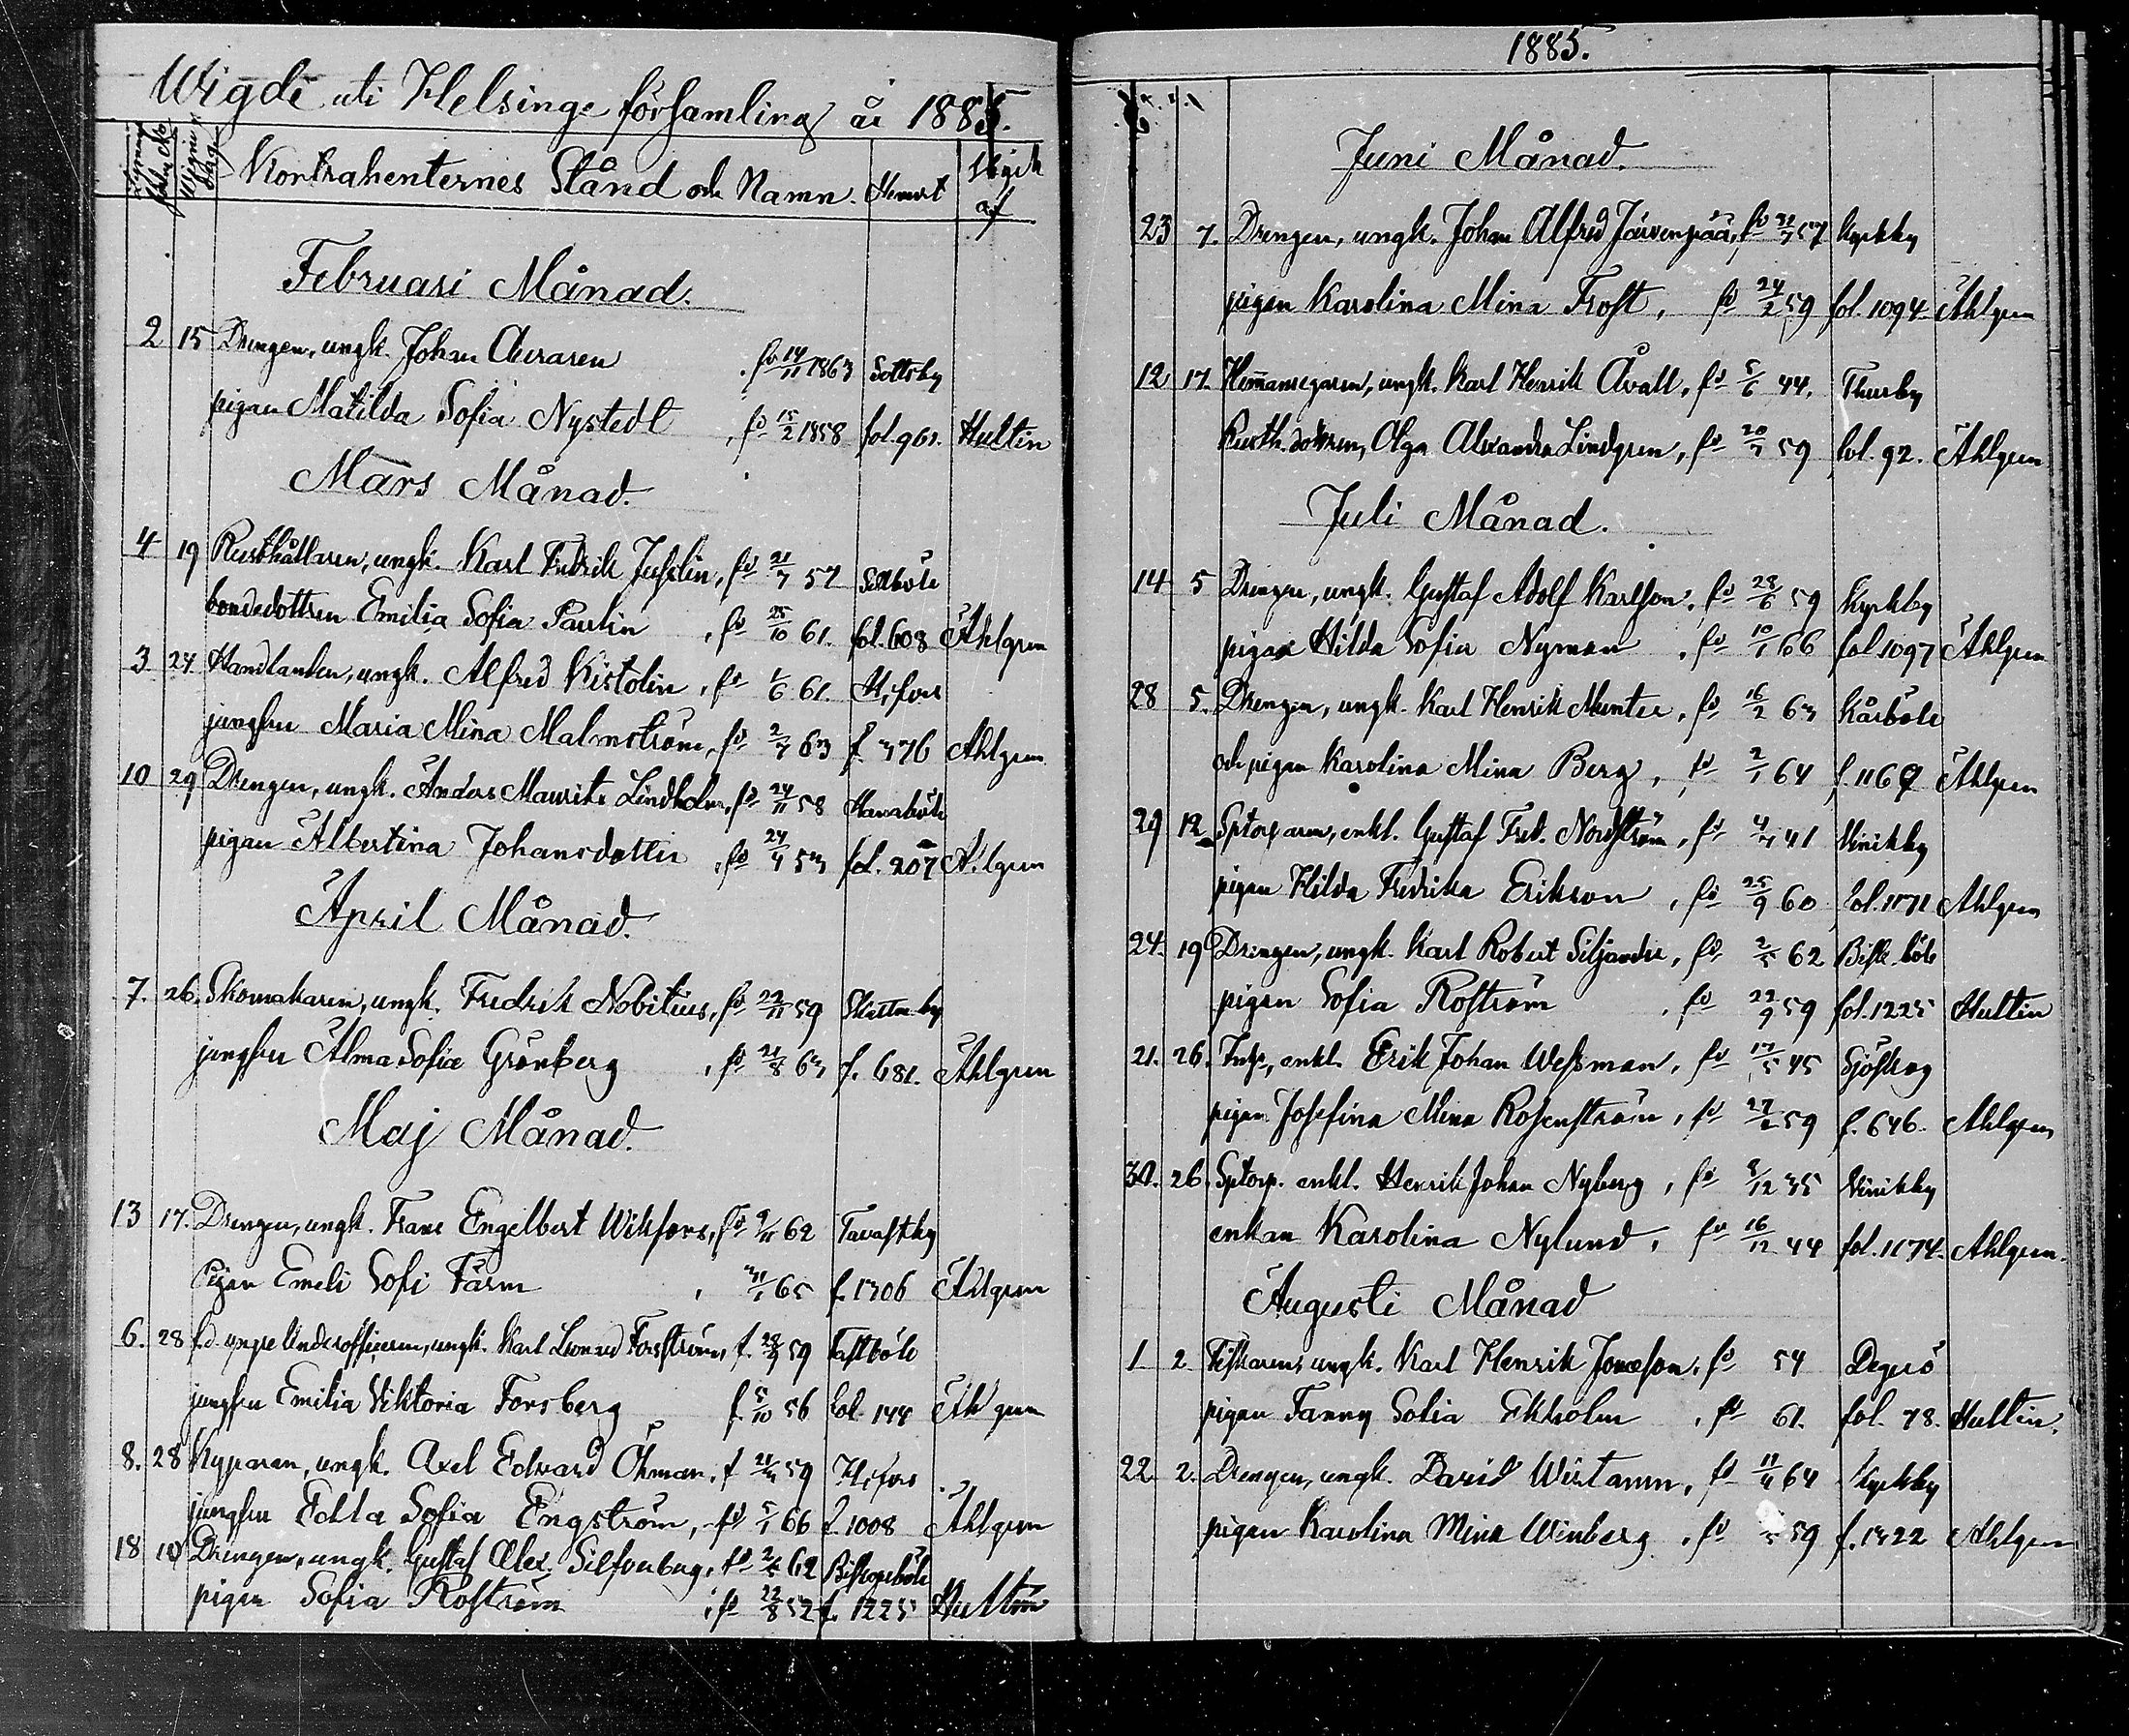 Wigde uti Helsinge församling år 1885.
Kontrahenternes Stånd och Namn. Hemort Wigde af
Februari Månad.
2 15 Drengen, ungk. Johan Averaren, fö 14/11 1863 Sottsby
pigan Matilda Sofia Nystedt, fö 15/2 1858 fol. 961. Hultin
Mars Månad.
4 19 Rusthållaren, ungk. Karl Fredrik Jusslin, fö 21/7 57 Sillböle
bondedottren Emilia Sofia Paulin, fö 25/10 61. fol. 608 Åhlgren
3 24 Handlanden, ungk. Alfred Kistolin, fö 1/6 61 H:fors
jungfru Maria Mina Malmström, fö 2/7 63 f. 376 Ahlgren
10 29 Drengen, ungk. Anders Maurits Lindholm, fö 24/11 58 Hanaböle
pigan Albertina Johansdotter, fö 24/4 53 fol. 207 Ahlgren
April Månad.
7. 26. Skomakaren, ungk. Fredrik Nobitius, fö 22/11 59 Skattmby
jungfru Alma Sofia Grönberg, fö 21/8 63 f. 681. Åhlgren
Maj Månad.
13 17. Drengen, ungk. Frans Engelbert Wikfors, fö 9/11 62 Tavastby
Pigan Emeli Sofi Färm, 31/1 65 f. 1306 Åhlgren
6. 28 f.d. yngre Underofficeren, ungk. Karl Leonard Forsström, f. 28/9 59 Fastböle
jungfru Emilia Viktoria Forsberg f. 5/10 56 fol. 144 Åhlgren
8. 28 Kyparen, ungk. Axel Edward Öhman, f 21/3 59 H:fors
jungfru Edla Sofia Engström, fö 5/1 66 f. 1008 Åhlgren
18 Drengen, ungk. Gustaf Alex. Silfverberg, fö 62 Biskopsböle
pigan Sofia Roström, fö 22/8 52 f. 1225 Hultin
1885.
Juni Månad.
23 7. Drengen, ungk. Johan Alfred Järvenpää, fö 31/7 57 Kyrkby
pigan Karolina Mina Frost, fö 24/2 59 fol. 1094 Åhlgren
12 17. Hemansegaren, ungk. Karl Henrik Åvall, fö 5/6 44. Thusby
Rusth. dottren, Olga Alexandra Lindgren, fö 20/7 59 fol. 92. Åhlgren
Juli Månad.
14 5 Drengen, ungk. Gustaf Adolf Karlsson, fö 28/6 59 Kyrkby
pigan Hilda Sofia Nyman, fö 10/1 66 fol 1097 Åhlgren
28 5. Drengen, ungk. Karl Henrik Munter, fö 16/2 63 Kårböle
och pigan Karolina Mina Berg, fö 2/1 64 f. 1167 Åhlgren
29 12 Sptorparen, enkl. Gustaf Fred. Nordström, fö 4/7 41 Vinikby
pigan Hilda Fredrika Erikson, fö 25/9 60 fol. 1171 Ahlgren
24. 19 Drengen, ungk. Karl Robert Siljander, fö 2/5 62 Bisk.böle
pigan Sofia Roström, fö 22/9 59 fol. 1225 Hultin
21. 26. Inhs, enkl. Erik Johan Wessman, fö 17/5 45 Sjöskog
pigan Josefina Mina Rosenström, fö 59 f. 646. Ahlgren
30. 26. Sptorp. enkl. Henrik Johan Nyberg, fö 8/12 35 Vinikby
enkan Karolina Nylund, fö 16/12 44 fol. 1174. Ahlgren.
Augusti Månad
1 2. Fiskaren, ungk. Karl Henrik Jonasson, fö 54 Degerö
pigan Fanny Sofia Ekholm, fö 61. fol. 78. Hultin.
22 2. Drengen, ungk. David Wirtanen, fö 11/4 64 Kyrkby
pigan Karolina Mina Winberg, fö 59 f. 1322 Ahlgren